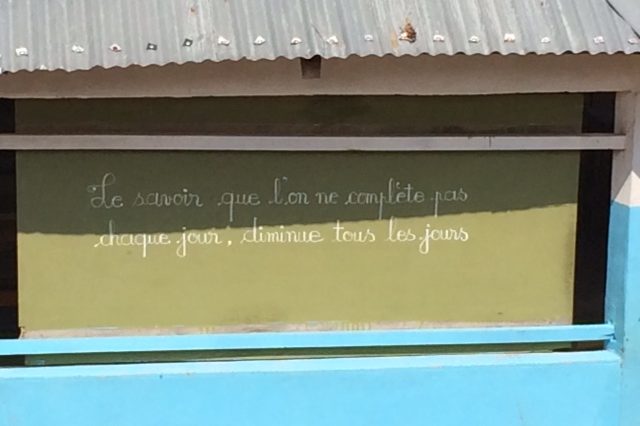 Le savoir que l'on ne complète pas
chaque jour, diminue tous les jours